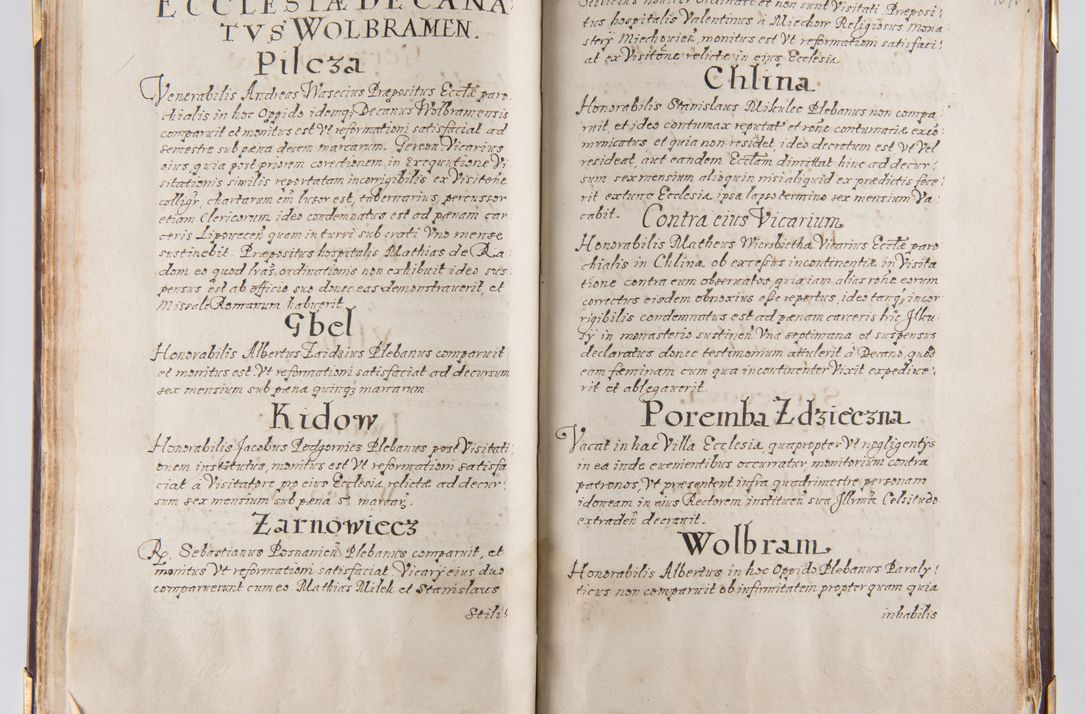 ECCLESIÆ DECANA
TVS WOLBRAMEN.
Pilcza
Venerabilis Andreas Wasecius Præpositus Ecctæ paro
chialis in hoc Oppido idemq; Decanus Wolbramensis
comparuit et monitus est Vt reformationi satisfaciat ad
semestre sub pæna decem marcarum. Gereon Vicarius
eius, quia post priorem corectionem in Exequutione Vi
sitationis similis reportatam incorrigibilis ex Visitone
colligr, chartarum em̃ lusor est, tabernarius, percussor
etiam Clericorum ideo condemnatus est ad pænam car
ceris Lipouecen̄ quem in turri sub crati Vno mense
sustinebit. Præpositus hospitalis Mathias de Ra
dom eo quod lr̃as ordinationis non exhibuit ideo sus
pensus est ab officio suo donec eas demonstrauerit, et
Missale Romanum habuerit.
Gbel
Honorabilis Albertus Zaidzius Plebanus comparuit
et monitus est Vt reformationi satisfaciat ad decursum
sex mensium sub pæna quinq; marcarum.
Kidow
Honorabilis Jacobus Podgornics Plebanus post Visitati
onem institutus, monitus est Vt reformationi satisfa
ciat à Visitatore pro eius Ecclesia relictæ ad decur
sum sex mensium sub pæna 5 marcar.
Zarnowiecz
R. Sebastianus Posnanien̄ Plebanus comparuit, et
monitus Vt reformationi satisfaciat Vicarÿ eius duo
comparuerunt cum eo Mathias Milek et Stanislaus
Stili
non sunt Visitati Præposi
tus hospitalis Valentinus à Miechow Religiosus Mona
sterÿ Miechouien̄, monitus est Vt reformationi satisfaci
at ex Visitone relictæ in eius Ecclesia
Chlina
Honorabilis Stanislaus Mikulec Plebanus non compa
ruit, et ideo contumax reputat et rõne contumaciæ exco
municatus et quia non residet, ideo decretum est Vt Vel
resideat, aut eandem Ecctam dimittat hinc ad decur
sum sex mensium alioquin nisi aliquid ex prædictis fece
rit extunc Ecclesia ipsa lapso termino sex mensium Va
cabit.
Contra eius Vicarium
Honorabilis Matheus Wierzbietha Vicarius Ecctæ paro
chialis in Chlina ob excessus incontinentiæ in Visita
tione contra eum obseruatos, quia iam alias rõne eorum
correctus eisdem obnoxius esse repertus, ideo tanq; incor
rigibilis condemnatus est ad pænam carceris hic Jlku
sÿ in monasterio sustinen̄ Vna septimana et suspensus
declaratus donec testimonium attulerit à Decano, quod
eam fæminam cum qua incontinenter Vixit expedive
rit et ablegauerit
Poremba Zdzieczna
Vacat in hac Villa Ecclesia, quapropter Vt negligentÿs
in ea inde euenientibus occurratur, monitorium contra
patronos, Vt præsentent infra quadrimestre personam
idoneam in eius Rectorem instituen̄ sua Jllma Celsitudo
extraden̄ decreuit.
Wolbram
Honorabilis Albertus in hoc Oppido Plebanus Paraly
ticus non comparuit ob infirmitatem propter quam quia
inhabilis